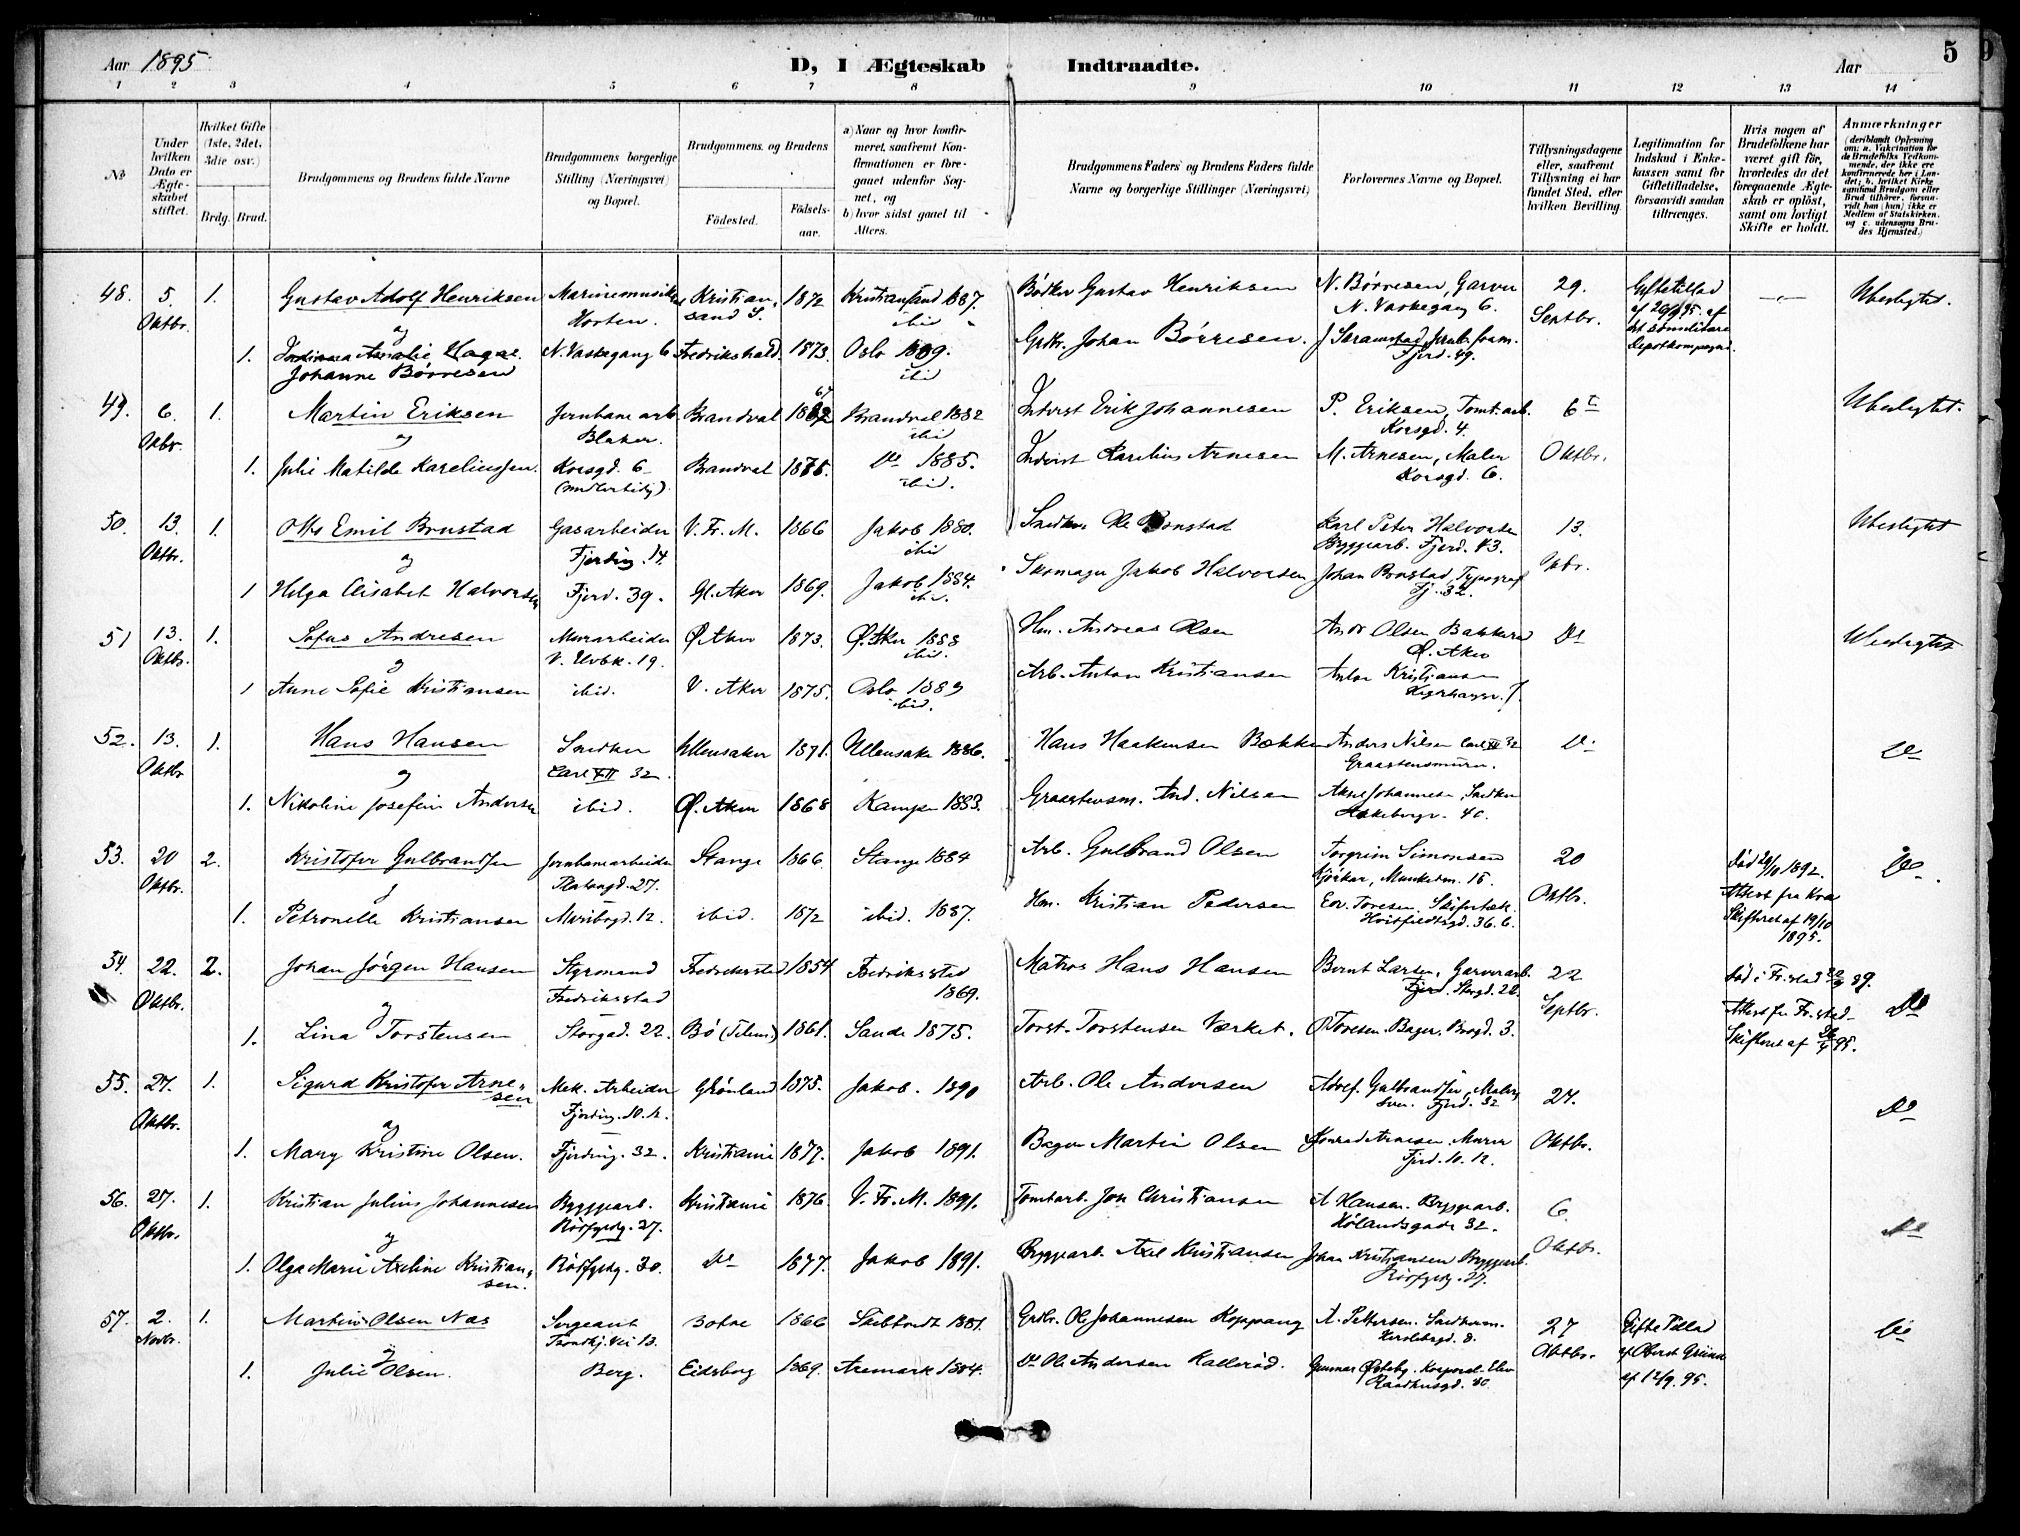 Aar 1895
D, I Ægteskab Indtraadte.
Aar
5
1 2 3 4 5 6 7 8 9 10 11 12 13 14
No
Under hvilken Dato er Ægteskabet stiftet.
Hvilket Gifte (1ste, 2det, 3die osv.)
Brdg. Brud.
Brudgommens og Brudens fulde Navne
Brudgommens borgerlige Stilling (Næringsvei) og Bopæl.
Brudgommens og Brudens
Fødested.
Fødselsaar.
a) Naar og hvor konfirmeret, saafremt Konfirmationen er foregaaet udenfor Sognet, og
b) hvor sidst gaaet til Alters.
Brudgommens Faders og Brudens Faders fulde Navne og borgerlige Stillinger (Næringsvei)
Forlovernes Navne og Bopæl.
Tillysningsdagene eller, saafremt Tillysning ei har fundet Sted, efter hvilken Bevilling.
Legitimation for Indskud i Enkekassen samt for Giftetilladelse, forsaavidt saadan tiltrænges.
Hvis nogen af Brudefolkene har været gift før, hvorledes da det foregaaende Ægteskab er opløst, samt om lovligt Skifte er holdt.
Anmærkninger
(deriblandt Oplysning om: a. Vakcination for de Brudefolks Vedkommende, der ikke ere konfirmerede her i Landet; b. hvilket Kirkesamfund Brudgom eller Brud tilhører, forsaavidt han (hun) ikke er Medlem af Statskirken, og c. udensogns Brudes Hjemsted.)
48. 5. Oktbr. 1. Gustav Adolf Henriksen Marinemusiker Horten. Kristiansand S. 1872 Kristiansand 1887. ibid Bødker Gustav Henriksen N. Børresen, Garver N. Vaskegang 6. 29. Septbr. Giftetillad Ubeslegtet.
og
1. Amalie Hagar Johanne Børresen N. Vaskegang 6 Fredrikshald 1873. Oslo 1889. ibid Johan Børresen. Fjerd. 49.
49. 6. Oktbr. 1. Martin Eriksen Jernbanearb. Blaker. Brandval Brandval 1882 ibid Inderst Erik Johannesen P. Eriksen, Tomt.arb. Korsgd. 4. 6 Ubeslegtet.
og
1. Julie Matilde Kareliussen. Korsgd. 6 Brandval 1875. Do 1885. ibid. Inderst Karelius Arnesen M. Arnesen, Maler Korsgd. 6. Oktbr.
50. 13. Oktbr. 1. Otto Emil Bonstad Gasarbeider Fjerding. 14. V. Fr. M. 1866 Jakob 1880. ibid Snedker Ole Bonstad Karl Peter Halvorsen Byggearb. Fjerd. 43. 13. Ubeslegtet
og
1 Helga Elisabet Halvorsen Fjerd. 39. Gl. Aker 1869. Jakob 1884. ibid. Skomager Jakob Halvorsen Johan Bonstad, Typograf Fj. 32. Oktbr.
51 13. Oktbr. 1. Sofus Andresen Murarbeider 19. Ø. Aker 1873. Ø. Aker 1888 ibid. Hm. Andreas Olsen Andr Olsen Bakkerud Ø. Aker Do Ubeslegtet
og
1 Anne Sofie Kristiansen ibid. V. Aker 1875. Oslo 1889 ibid. Arb. Anton Kristiansen Anton Kristiansen
52. 13. Oktbr 1. Hans Hansen Snedker Carl XII 32. Ullensaker 1871. Ullensaker 1886. Hans Haakensen Bækken Anders Nilsen Carl XII 32 Graastensmurer. Do Do
og
1. Nikoline Josefine Andersen ibid. Ø. Aker 1868 Kampen 1883. Graastensm. And. Nilsen Johannesen, Snedker 40.
53. 20 Oktbr. 2. Kristofer Gulbrandsen Jernbanearbeider Platougd. 27. Stange 1866. Stange 1884 Arb. Gulbrand Olsen Torgrim Simonsen Kjørkar, Munkedm. 15. 20 Død 29/10 1892. Do
og
1. Petronelle Kristiansen Maribogd. 12. ibid. 1872 ibid. 1887. Hm. Kristian Pedersen Edv. Toresen, Skifertæk. Hvitfeldtsgd. 36.b. Oktbr. Attest fra Kra Skifteret af 19/10 1895.
54. 22. Oktbr. 2. Johan Jørgen Hansen Styrmand Fredriksstad Fredriksstad 1854 Fredriksstad 1869. Matros Hans Hansen Bernt Larsen, Garverarb. Storgd. 22. 22 Død i Fr.stad Do
og
1. Lina Torstensen Storgad. 22. Bø (Telem.) 1861. Sande 1875. Torst. Torstensen Værket. P. Toresen, Bager, Brogd. 3. Septbr. Attest fr Fr.stad Skifteret af 95.
55. 27. Oktbr. 1. Sigurd Kristofer Arnesen Mek. Arbeider Fjerding. 10.12. Grønland 1875. Jakob. 1890 Arb. Ole Andersen Adolf Gulbrandsen, Malersven. Fjerd. 32 27. Do
og
1. Mary Kristine Olsen. Fjerding. 32. Kristiania 1877. Jakob 1891. Bager Martin Olsen Konrad Arnesen. Murer Fjrd. 10.12. Oktbr.
56. 27. Oktbr. 1. Kristian Julius Johannesen Byggearb. Rørfgdg. 27. Kristiania 1876. V. Fr. M. 1891. Tomtarb. Jon Christiansen A Hansen. Byggearb. Hølandsgade 32. 6. Do
og
1. Olga Marie Axeline Kristiansen. 30. Do 1877. Jakob 1891. Byggearb. Axel Kristiansen Johan Kristiansen Byggearb. 27. Oktbr.
57. 2. Novbr. 1. Martinus Olsen Næs Sergeant Trondhj.vei 13. Botne 1866 Skibtvedt 1881. Grdbr. Ole Johannesen Koppang A. Pettersen. Snedkerm. Herslebsgd. 8. 27 Gifte Tillad Do
og
1. Julie Olsen. Berg. Eidsberg 1869. Aremark 1884. Do Ole Andersen Kallerød. Gunnar Østeby. Korporal-Elev Raadhusgd. 40. Oktbr. af Oberst af 12/9. 95.